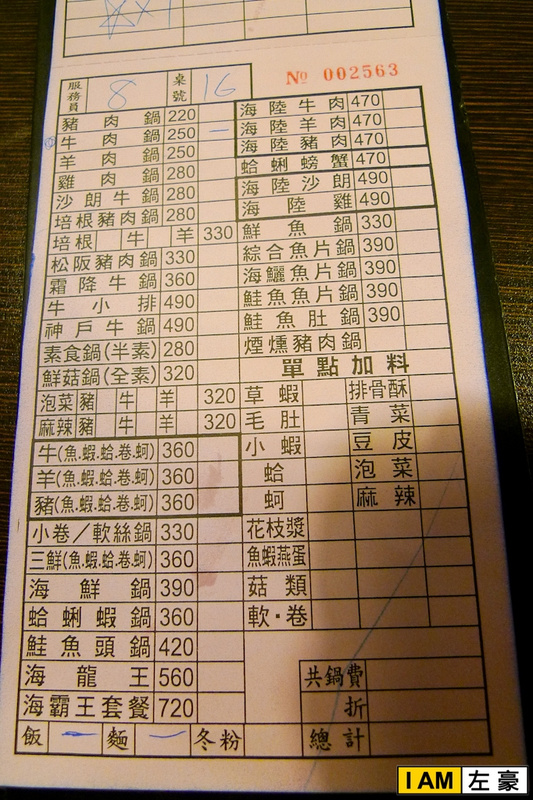 服務員 8 桌號 16 № 002563
豬肉鍋 220
牛肉鍋 250 一
羊肉鍋 250
雞肉鍋 280
沙朗牛鍋 280
培根豬肉鍋 280
培根 牛 羊 330
松阪豬肉鍋 330
霜降牛鍋 360
牛小排 490
神戶牛鍋 490
素食鍋(半素) 280
鮮菇鍋(全素) 320
泡菜豬 牛 羊 320
麻辣豬 牛 羊 320
牛(魚.蝦.蛤.卷.蚵) 360
羊(魚.蝦.蛤.卷.蚵) 360
豬(魚.蝦.蛤.卷.蚵) 360
小卷／軟絲鍋 330
三鮮(魚.蝦.蛤.卷.蚵) 360
海鮮鍋 390
蛤蜊蝦鍋 360
鮭魚頭鍋 420
海龍王 560
海霸王套餐 720
飯 一 麵 一 冬粉
海陸牛肉 470
海陸羊肉 470
海陸豬肉 470
蛤蜊螃蟹 470
海陸沙朗 490
海陸雞 490
鮮魚鍋 330
綜合魚片鍋 390
海鱺魚片鍋 390
鮭魚魚片鍋 390
鮭魚肚鍋 390
煙燻豬肉鍋
單點加料
草蝦 排骨酥
毛肚 青菜
小蝦 豆皮
蛤 泡菜
蚵 麻辣
花枝漿
魚蝦燕蛋
菇類
軟·卷
共鍋費
折
總計
I AM 左豪